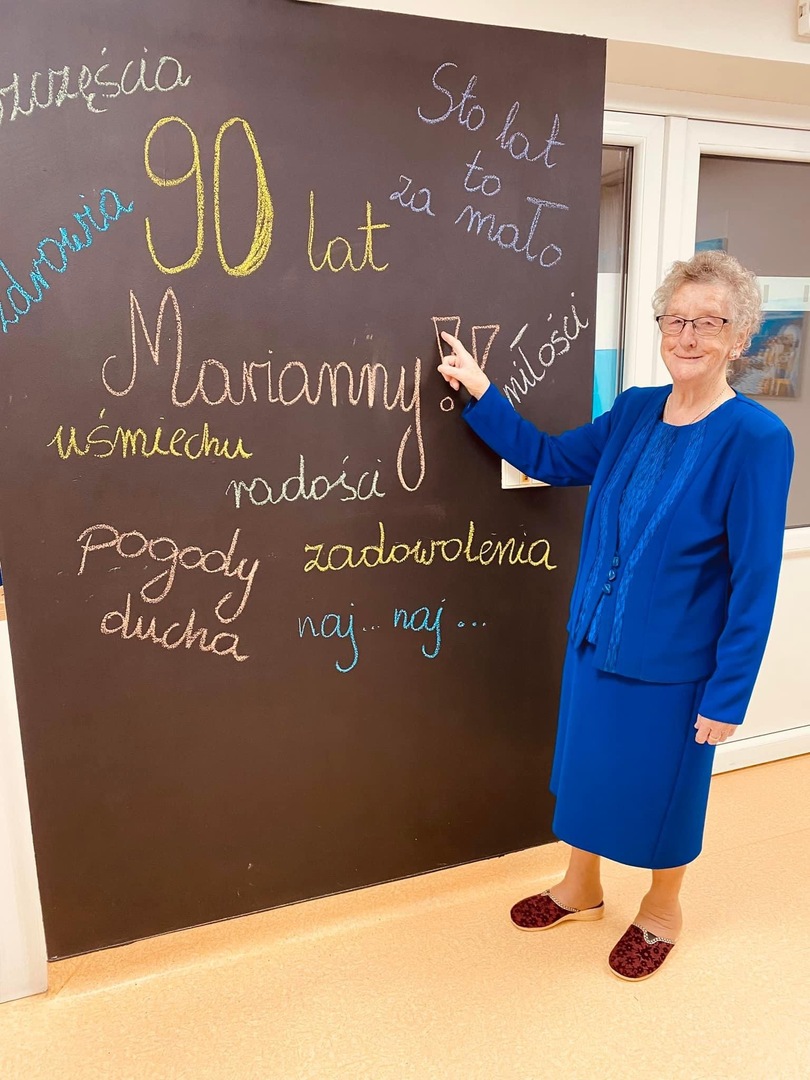 szczęścia
Sto lat
to
za mało
90 lat
zdrowia
Marianny!!
miłości
uśmiechu
radości
pogody
ducha
zadowolenia
naj... naj...